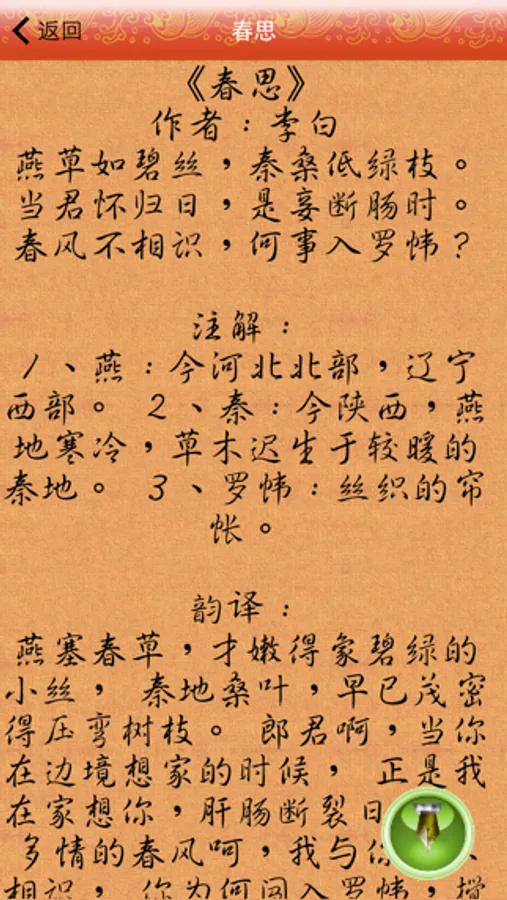 返回
春思
《春思》
作者：李白
燕草如碧丝，秦桑低绿枝。
当君怀归日，是妾断肠时。
春风不相识，何事入罗帏？
注解：
1、燕：今河北北部，辽宁
西部。 2、秦：今陕西，燕
地寒冷，草木迟生于较暖的
秦地。 3、罗帏：丝织的帘
帐。
韵译：
燕塞春草，才嫩得象碧绿的
小丝， 秦地桑叶，早已茂密
得压弯树枝。 郎君啊，当你
在边境想家的时候， 正是我
在家想你，肝肠断裂日
多情的春风呵，我与你
相识， 你为何闯入罗帏，搅